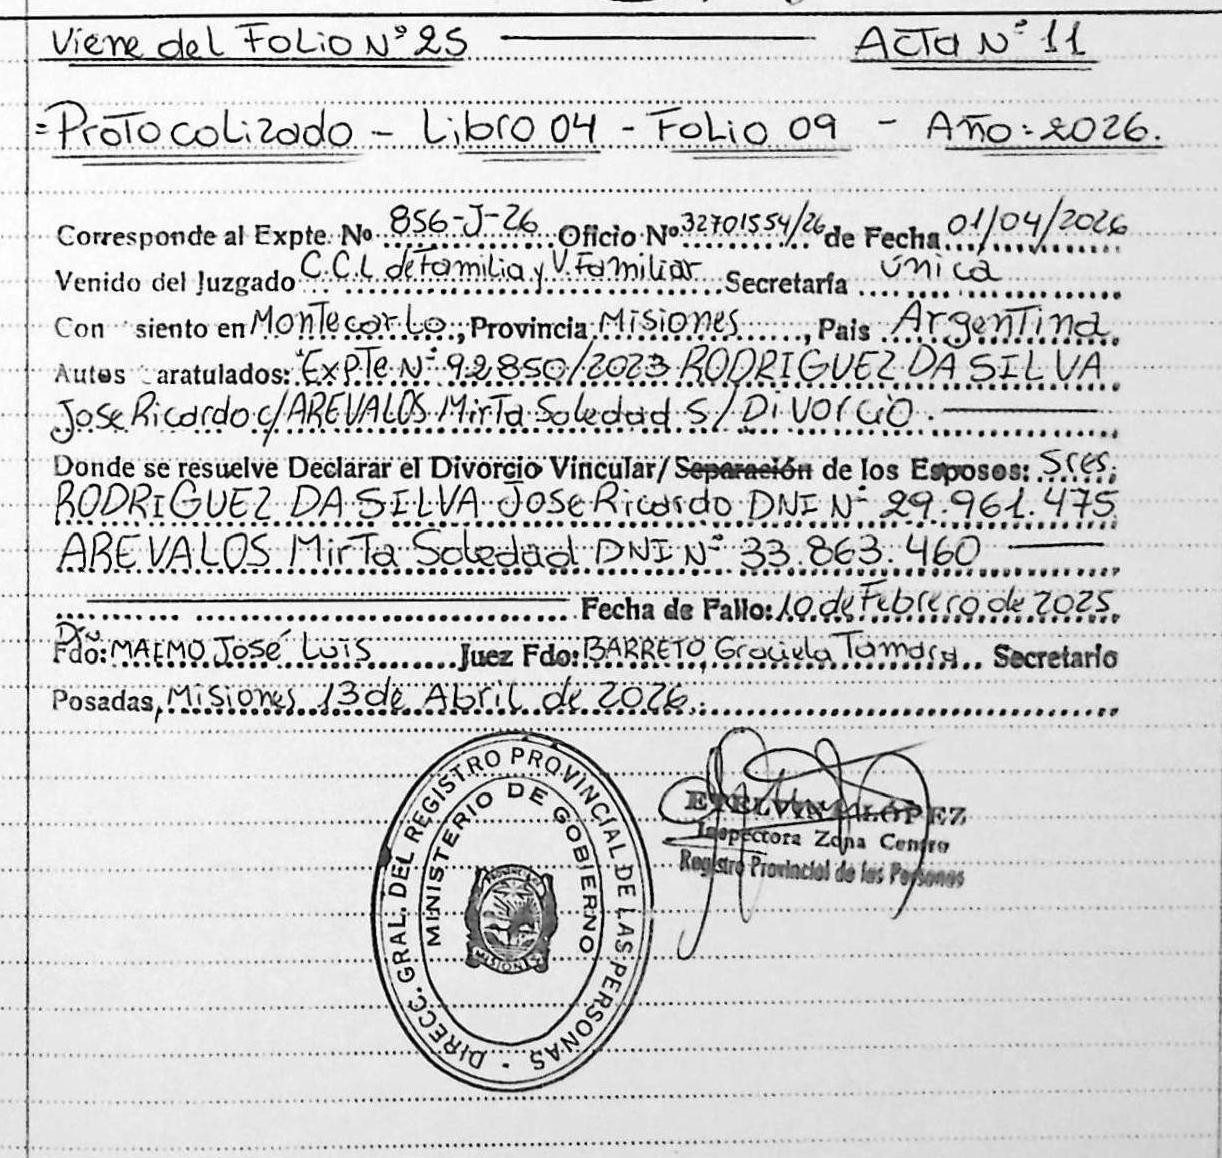 Viene del FOLIO N° 25 ——— ACTA N° 11
= Protocolizado - Libro 04 - Folio 09 - Año: 2026.
Corresponde al Expte. Nº 856-J-26 Oficio Nº 32701554/26 de Fecha 01/04/2026
Venido del Juzgado C.C.L. de Familia y V. Familiar Secretaría única
Con siento en Montecarlo, Provincia Misiones, Pais Argentina
Autos aratulados: Expte N° 92850/2023 RODRIGUEZ DA SILVA
Jose Ricardo c/ AREVALOS Mirta Soledad S/ Divorcio.
Donde se resuelve Declarar el Divorcio Vincular/ Separación de los Esposos: Sres.
RODRIGUEZ DA SILVA Jose Ricardo DNI N° 29.961.475
AREVALOS Mirta Soledad DNI N° 33.863.460
Fecha de Fallo: 10 de Febrero de 2025
Fdo: José Luis Juez Fdo: BARRETO, Graciela Tamara Secretario
Posadas, Misiones 13 de Abril de 2026.
DIRECC. GRAL. DEL REGISTRO PROVINCIAL DE LAS PERSONAS
MINISTERIO DE GOBIERNO
PROVINCIA DE
MISIONES
ETELVINA LÓPEZ
Inspectora Zona Centro
Registro Provincial de las Personas